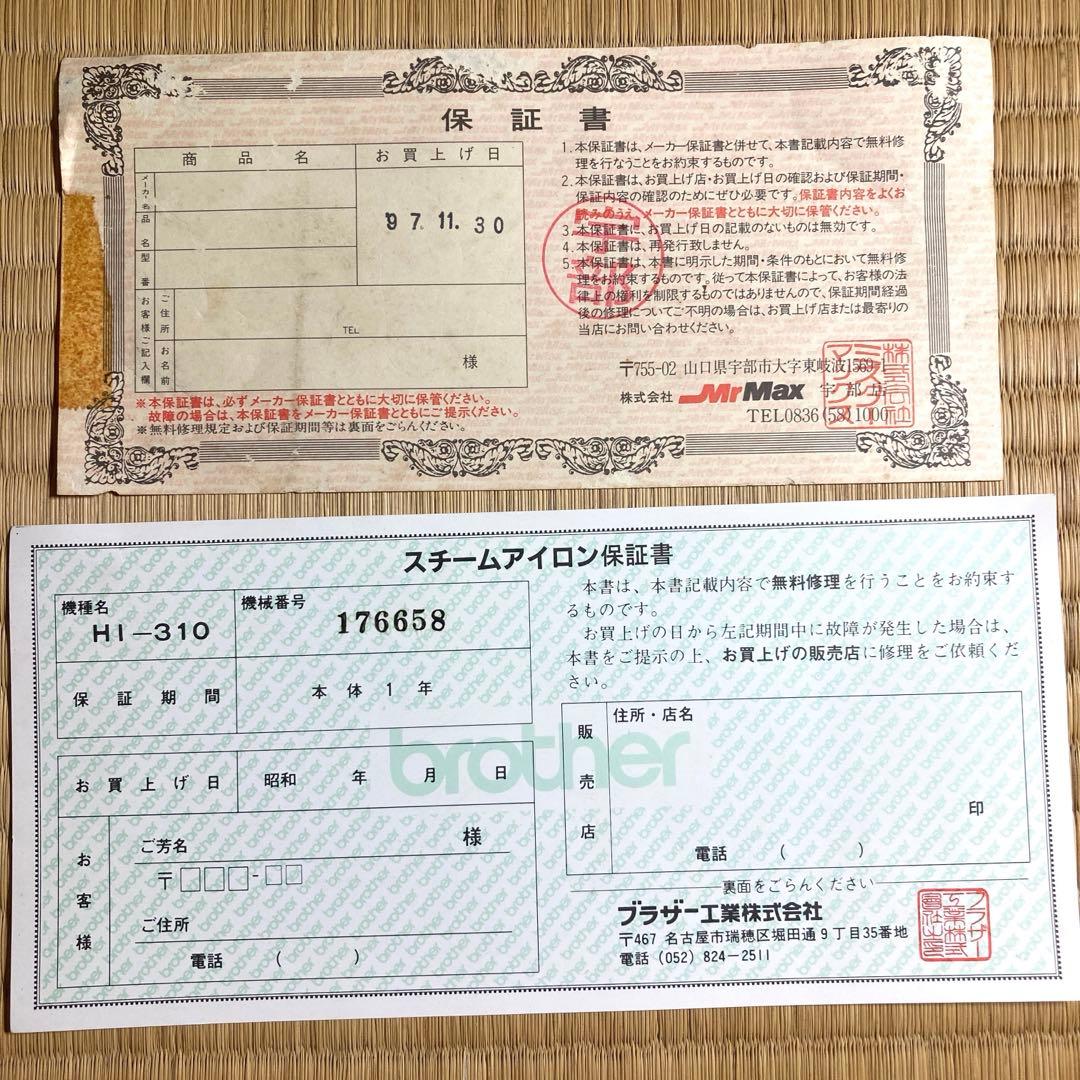 保証書
商品名
お買上げ日
メーカー名
品名
型番
'97. 11. 30
お客様ご記入欄
ご住所
TEL
お名前
様
※本保証書は、必ずメーカー保証書とともに大切に保管ください。
故障の場合は、本保証書をメーカー保証書とともにご提示ください。
※無料修理規定および保証期間等は裏面をごらんください。
1. 本保証書は、メーカー保証書と併せて、本書記載内容で無料修
理を行なうことをお約束するものです。
2. 本保証書は、お買上げ店・お買上げ日の確認および保証期間・
保証内容の確認のためにぜひ必要です。保証書内容をよくお
読みのうえ、メーカー保証書とともに大切に保管ください。
3. 本保証書に、お買上げ日の記載のないものは無効です。
4. 本保証書は、再発行致しません。
5. 本保証書は、本書に明示した期間・条件のもとにおいて無料修
理をお約束するものです。従って本保証書によって、お客様の法
律上の権利を制限するものではありませんので、保証期間経過
後の修理についてご不明の場合は、お買上げ店または最寄りの
当店にお問い合わせください。
宇部
〒755-02 山口県宇部市大字東岐波1569-1
株式会社 MrMax 宇部店
TEL0836(58)1000
株式会社ミスターマックス
スチームアイロン保証書
機種名
HI-310
機械番号
176658
保証期間
本体1年
お買上げ日
昭和 年 月 日
お客様
ご芳名
様
〒□□□-□□
ご住所
電話 ( )
brother
本書は、本書記載内容で無料修理を行うことをお約束す
るものです。
お買上げの日から左記期間中に故障が発生した場合は、
本書をご提示の上、お買上げの販売店に修理をご依頼くだ
さい。
販売店
住所・店名
印
電話 ( )
裏面をごらんください
ブラザー工業株式会社
〒467 名古屋市瑞穂区堀田通9丁目35番地
電話(052)824-2511
ブラザー工業株式会社之印